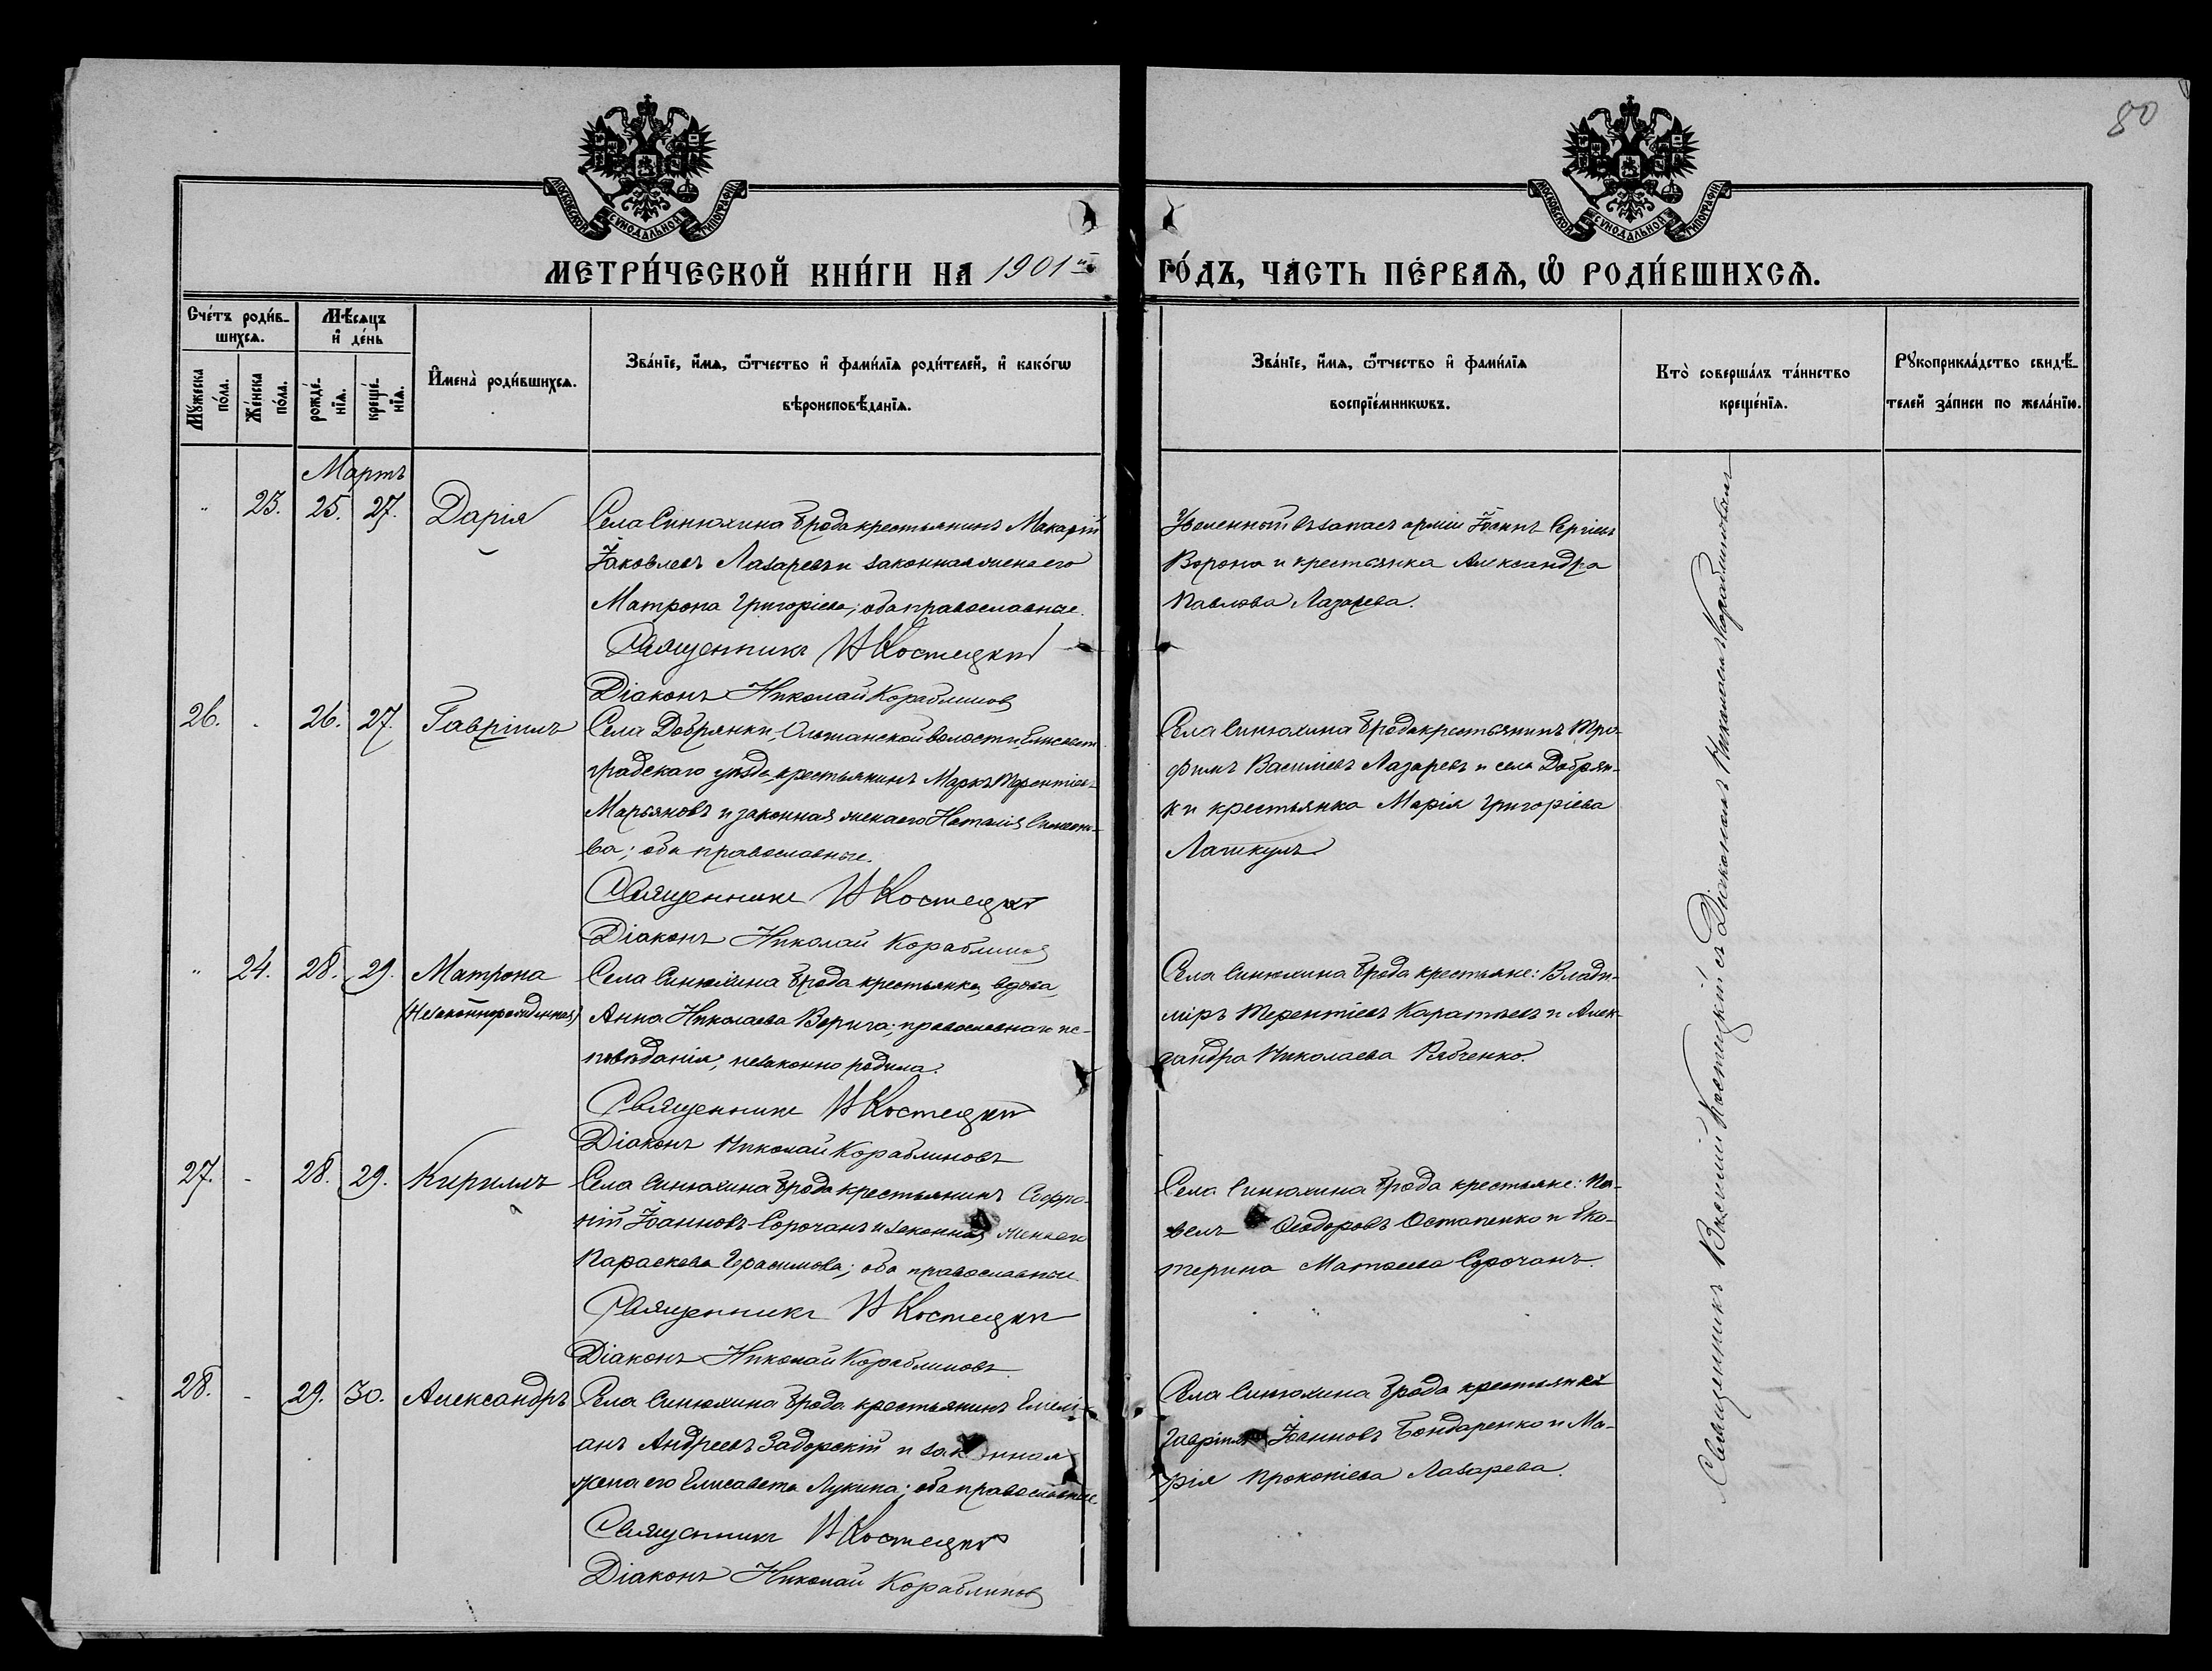 80
МОСКОВСКОЙ СѴНОДАЛЬНОЙ ТИПОГРАФІИ
МОСКОВСКОЙ СѴНОДАЛЬНОЙ ТИПОГРАФІИ
МЕТРИ́ЧЕСКОЙ КНИ́ГИ НА 1901й
ГО́ДЪ, ЧА́СТЬ ПЕ́РВАѦ, Ѽ РОДИ́ВШИХСѦ.
Сче́тъ роди́в-
шихсѧ.
Мꙋжеска по́ла.
Же́нска по́ла.
Мѣ́сѧцъ
и҆ де́нь
рожде́-
нїѧ.
креще́-
нїѧ.
И҆мена̀ роди́вшихсѧ.
Зва́нїе, и҆́мѧ, ѻ҆́тчество и҆ фами́лїѧ роди́телей, и҆ како́гѡ
вѣроисповѣ́данїѧ.
Зва́нїе, и҆́мѧ, ѻ҆́тчество и҆ фами́лїѧ
воспрїе́мникѡвъ.
Кто̀ соверша́лъ та́инство
креще́нїѧ.
Рꙋкоприкла́дство свидѣ́-
телей за́писи по жела́нїю.
Мартъ
" 23. 25. 27. Дарія
Села Синюхина Брода крестьянинъ Макарій
Іаковлевъ Лазаревъ и законная жена его
Матрона Григоріева; оба православные.
Священникъ В Костецкій
Діаконъ Николай Кораблиновъ
Уволенный въ запасъ арміи Іоаннъ Сергіевъ
Ворона и крестьянка Александра
Павлова Лазарева.
26. - 26. 27. Гавріилъ
Села Добрянки, Ольшанской волости, Елисавет-
градскаго уѣзда крестьянинъ Маркъ Терентіевъ
Марьяновъ и законная жена его Наталія Симеоно-
ва; оба православные.
Священникъ В Костецкій
Діаконъ Николай Кораблиновъ
Села Синюхина Брода крестьянинъ Тро-
фимъ Василіевъ Лазаревъ и села Добрян-
ки крестьянка Марія Григоріева
" 24. 28. 29. Матрона
(Незаконнорожденная)
Села Синюхина Брода крестьянка, вдова,
Анна Николаева Верига; православнаго ис-
повѣданія; незаконно родила.
Священникъ В Костецкій
Діаконъ Николай Кораблиновъ
Села Синюхина Брода крестьяне: Влади-
міръ Терентіевъ и Алек-
сандра Николаева Рябченко.
27. - 28. 29. Кириллъ
Села Синюхина Брода крестьянинъ Софро-
ній Іоанновъ Сорочанъ и законная жена его
Параскева Герасимова; оба православные
Священникъ В Костецкій
Діаконъ Николай Кораблиновъ
Села Синюхина Брода крестьяне: Па-
велъ Ѳеодоровъ Остапенко и Ека-
терина Матѳеева Сорочанъ.
28. - 29. 30. Александръ
Села Синюхина Брода крестьянинъ Емелі-
анъ Андреевъ Задорскій и законная
жена его Елисавета Лукина; оба православные
Священникъ В Костецкій
Діаконъ Николай Кораблиновъ
Села Синюхина Брода крестьяне
Гавріилъ Іоанновъ Бондаренко и Ма-
рія Прокопіева Лазарева.
Священникъ Василій Костецкій съ Діакономъ Николаемъ Кораблиновымъ